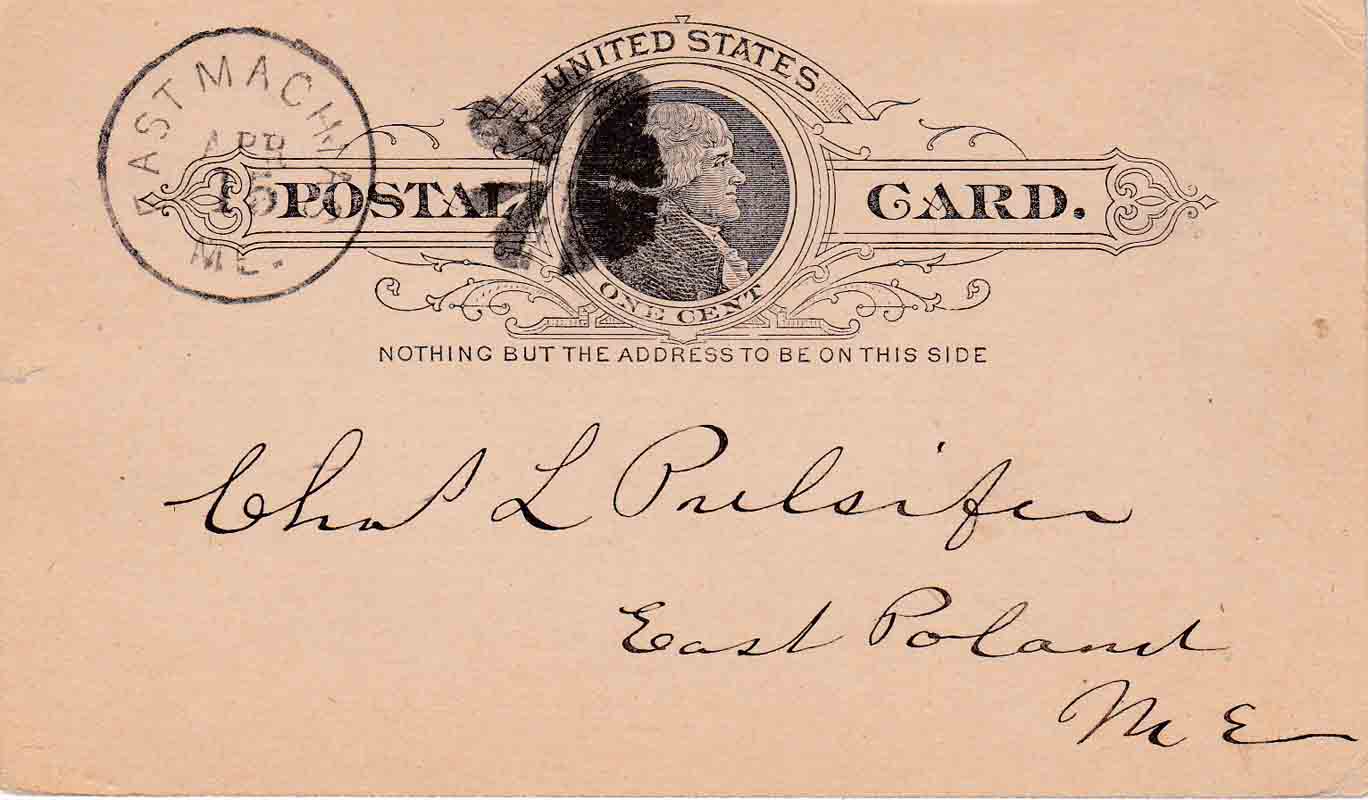 UNITED STATES
EAST MACHIAS
APR
15
ME.
POSTAL CARD.
ONE CENT
NOTHING BUT THE ADDRESS TO BE ON THIS SIDE
Chas L Pulsifer
East Poland
ME